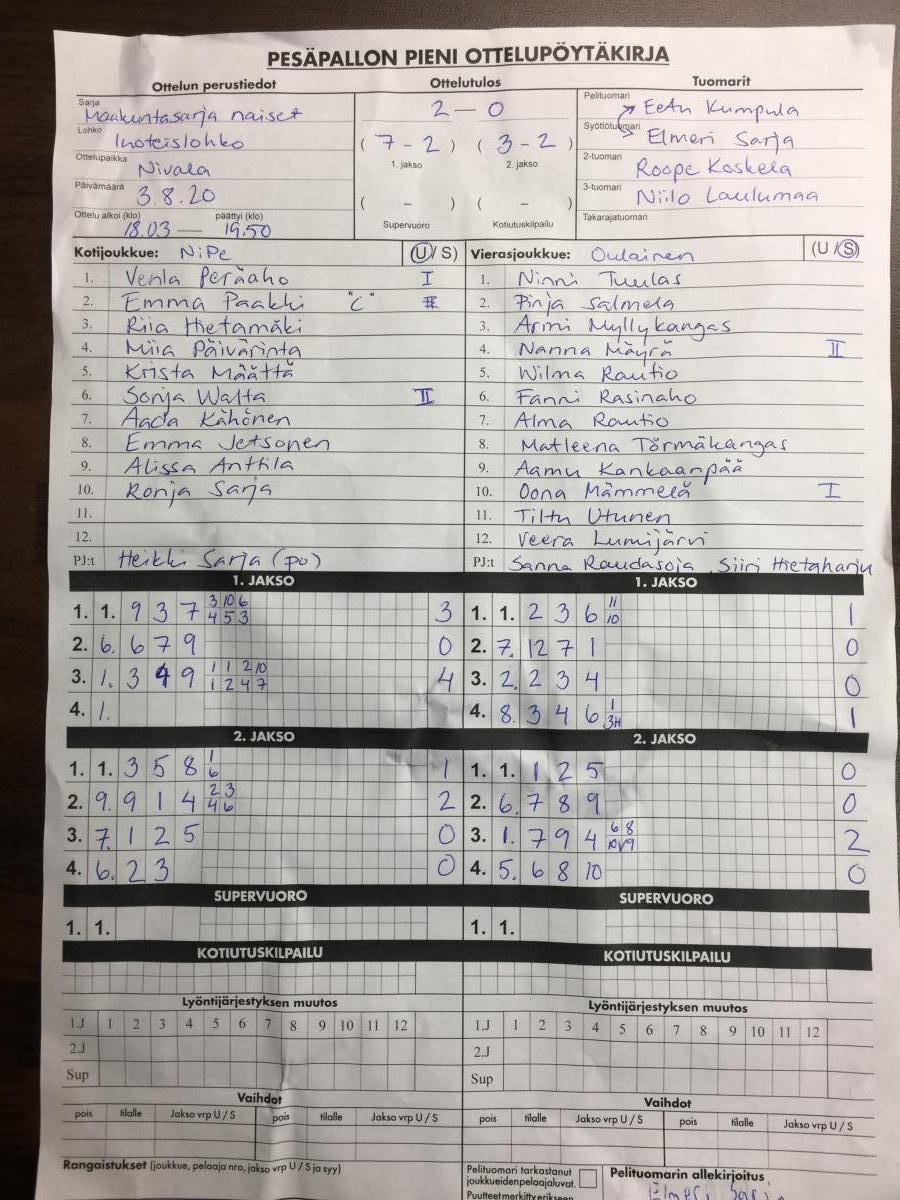 PESÄPALLON PIENI OTTELUPÖYTÄKIRJA
Ottelun perustiedot Ottelutulos Tuomarit
Sarja Maakuntasarja naiset 2 – 0 Pelituomari Eetu Kumpula
Lohko Inoteislohko ( 7 - 2 ) ( 3 - 2 ) Syöttötuomari Elmeri Sarja
1. jakso 2. jakso
Ottelupaikka Nivala 2-tuomari Roope Koskela
Päivämäärä 3.8.20 ( – ) ( – ) 3-tuomari Niilo Laulumaa
Ottelu alkoi (klo) päättyi (klo) Supervuoro Kotiutuskilpailu Takarajatuomari
18.03 — 19.50
Kotijoukkue: NiPe (U/ S) Vierasjoukkue: Oulainen (U / S)
1. Venla Peräaho I 1. Ninni Tuulas
2. Emma Paakki "C" 2. Pinja Salmela
3. Riia Hietamäki 3. Armi Myllykangas
4. Miia Päivärinta 4. Nanna Mäyrä II
5. Krista Määttä 5. Wilma Rautio
6. Sonja Walta II 6. Fanni Rasinaho
7. Aada Kähönen 7. Alma Rautio
8. Emma Jetsonen 8. Matleena Törmäkangas
9. Alissa Anttila 9. Aamu Kankaanpää
10. Ronja Sarja 10. Oona Mämmelä I
11. 11. Tiltu Utunen
12. 12. Veera Lumijärvi
PJ:t Heikki Sarja (po) PJ:t Sanna Raudasoja, Siiri Hietaharju
1. JAKSO 1. JAKSO
1. 1. 9 3 7 3 10 6 3 1. 1. 2 3 6 11 1
4 5 3 10
2. 6. 6 7 9 0 2. 7. 12 7 1 0
3. 1. 3 4 9 1 1 2 10 4 3. 2. 2 3 4 0
1 2 4 7
4. 1. 4. 8. 3 4 6 1 1
3H
2. JAKSO 2. JAKSO
1. 1. 3 5 8 1 1 1. 1. 1 2 5 0
6
2. 9. 9 1 4 2 3 2 2. 6. 7 8 9 0
4 6
3. 7. 1 2 5 0 3. 1. 7 9 4 6 8 2
4. 6. 2 3 0 4. 5. 6 8 10 0
SUPERVUORO SUPERVUORO
1. 1. 1. 1.
KOTIUTUSKILPAILU KOTIUTUSKILPAILU
Lyöntijärjestyksen muutos Lyöntijärjestyksen muutos
1.J 1 2 3 4 5 6 7 8 9 10 11 12 1.J 1 2 3 4 5 6 7 8 9 10 11 12
2.J 2.J
Sup Sup
Vaihdot Vaihdot
pois tilalle Jakso vrp U / S pois tilalle Jakso vrp U / S pois tilalle Jakso vrp U / S pois tilalle Jakso vrp U / S
Rangaistukset (joukkue, pelaaja nro, jakso vrp U / S ja syy) Pelituomari tarkastanut Pelituomarin allekirjoitus
joukkueidenpelaajaluvat.
Puutteet merkitty erikseen Elmeri Sarja